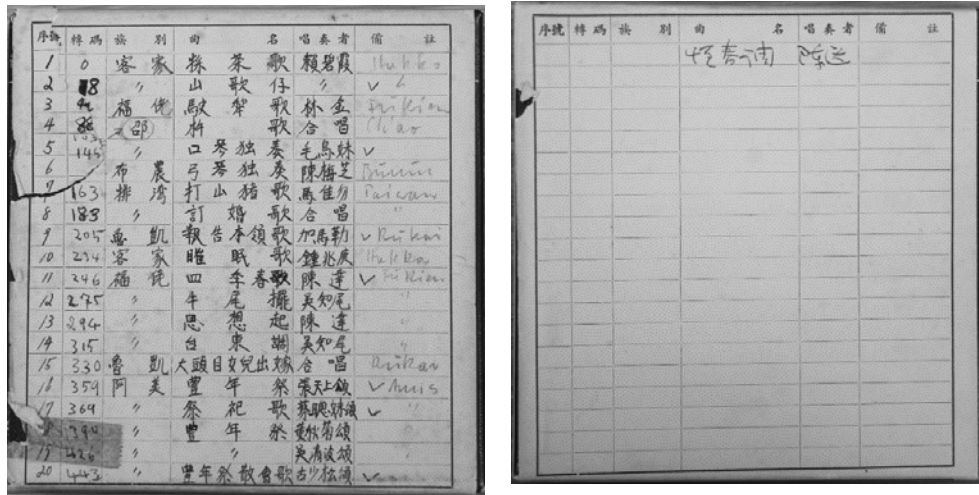 序號 轉碼 族別 曲名 唱奏者 備註
1 0 客家 採茶歌 賴碧霞 Hakka
2 18 〃 山歌仔 〃 ✓ 〃
3 福佬 駛犁歌 林金 Fukien
4 88 邵 杵歌 合唱 Chao
5 145 〃 口琴独奏 毛烏妹 ✓
6 布農 弓琴独奏 陳梅芝 Bunun
7 163 排湾 打山猪歌 馬佳 Paiwan
8 183 〃 訂婚歌 合唱 〃
9 205 魯凱 報告本領歌 加馬勒 ✓ Rukai
10 234 客家 瞌眠歌 鍾兆庚 Hakka
11 246 福佬 四季春歌 陳達 ✓ Fukien
12 275 〃 牛尾擺 吳知尾 〃
13 294 〃 思想起 陳達 〃
14 315 〃 台東調 吳知尾 〃
15 330 魯凱 大頭目女兒出嫁 合唱 Rukai
16 359 阿美 豐年祭 ✓ Amis
17 369 〃 祭祀歌 蔡聰妹領 ✓ 〃
18 394 〃 豐年祭 黃秋菊領
19 426 〃 〃 吳清波領
20 443 〃 豐年祭散會歌 古沙松領 ✓
序號 轉碼 族別 曲名 唱奏者 備註
恆春调 陈达